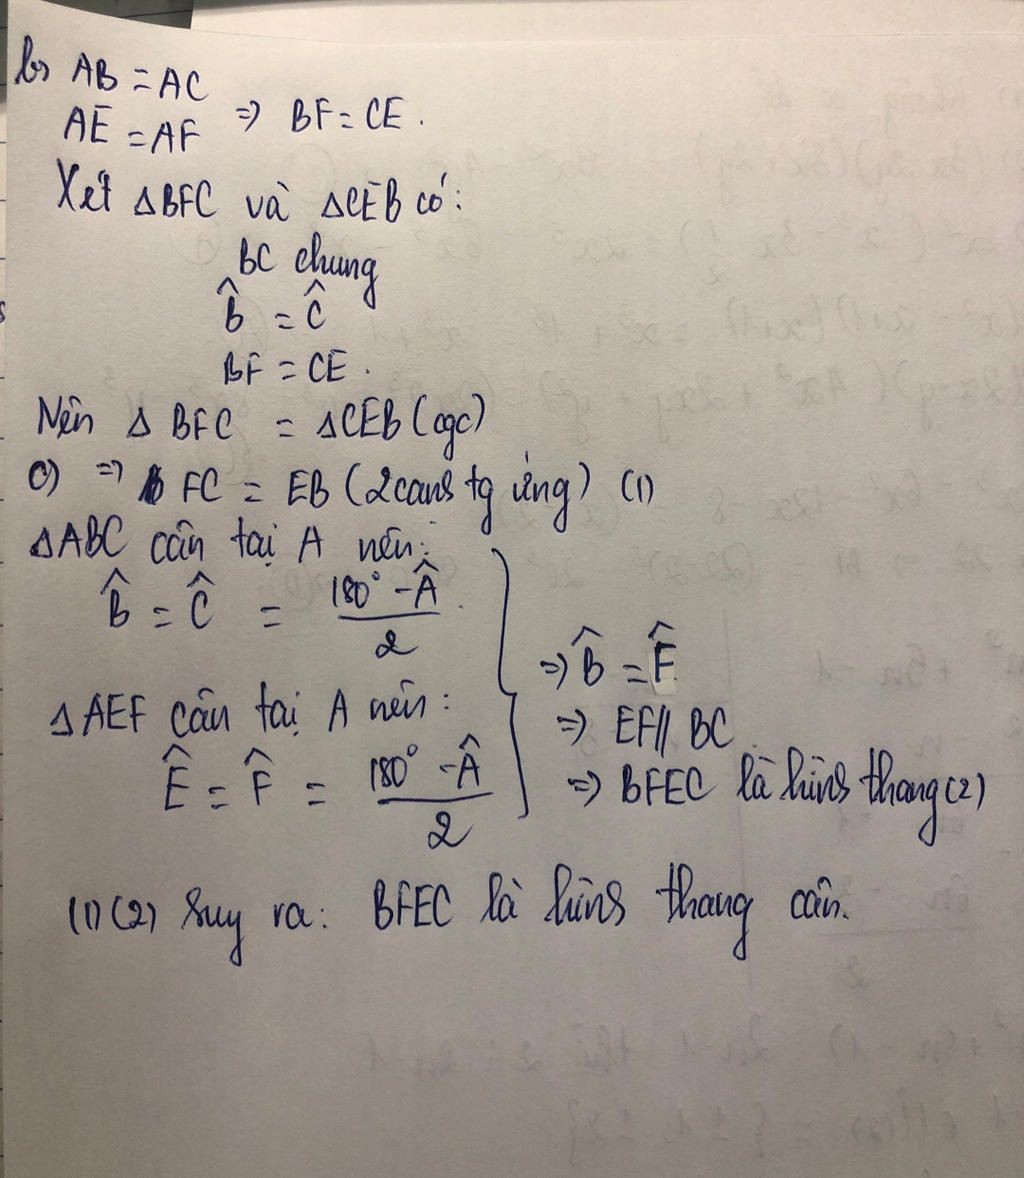 b, AB = AC
AE = AF ⇒ BF = CE.
Xét ΔBFC và ΔCEB có:
BC chung
B̂ = Ĉ
BF = CE.
Nên Δ BFC = ΔCEB (cgc)
c) ⇒ FC = EB (2 cans tg ứng) (1)
ΔABC cân tại A nên:
B̂ = Ĉ = (180° - Â)/2
ΔAEF cân tại A nên:
Ê = F̂ = (180° - Â)/2
⇒ B̂ = F̂
⇒ EF // BC
⇒ BFEC là hìns thang (2)
(1) (2) suy ra: BFEC là hìns thang cân.